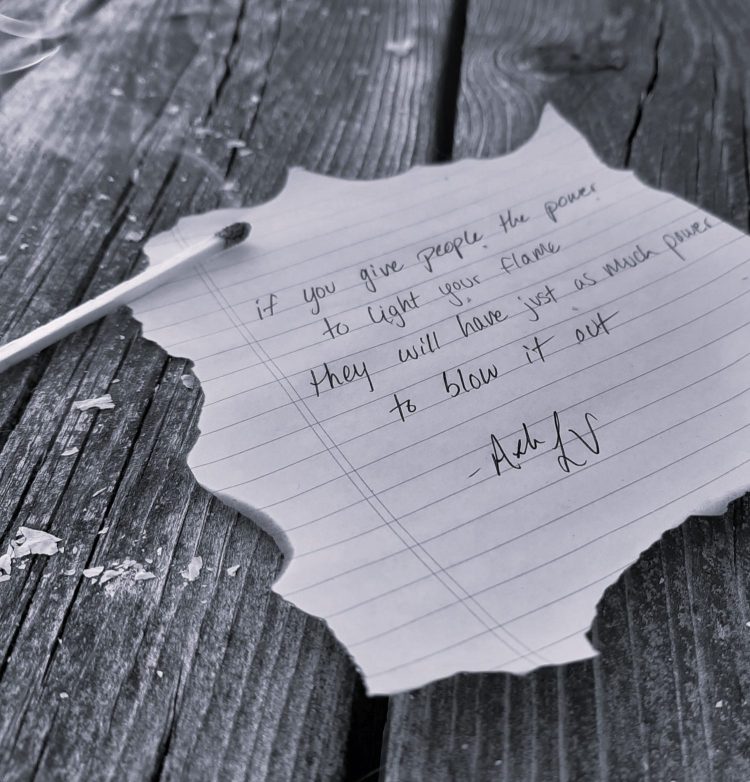 if you give people the power
to light your flame
they will have just as much power
to blow it out
- Ash LV